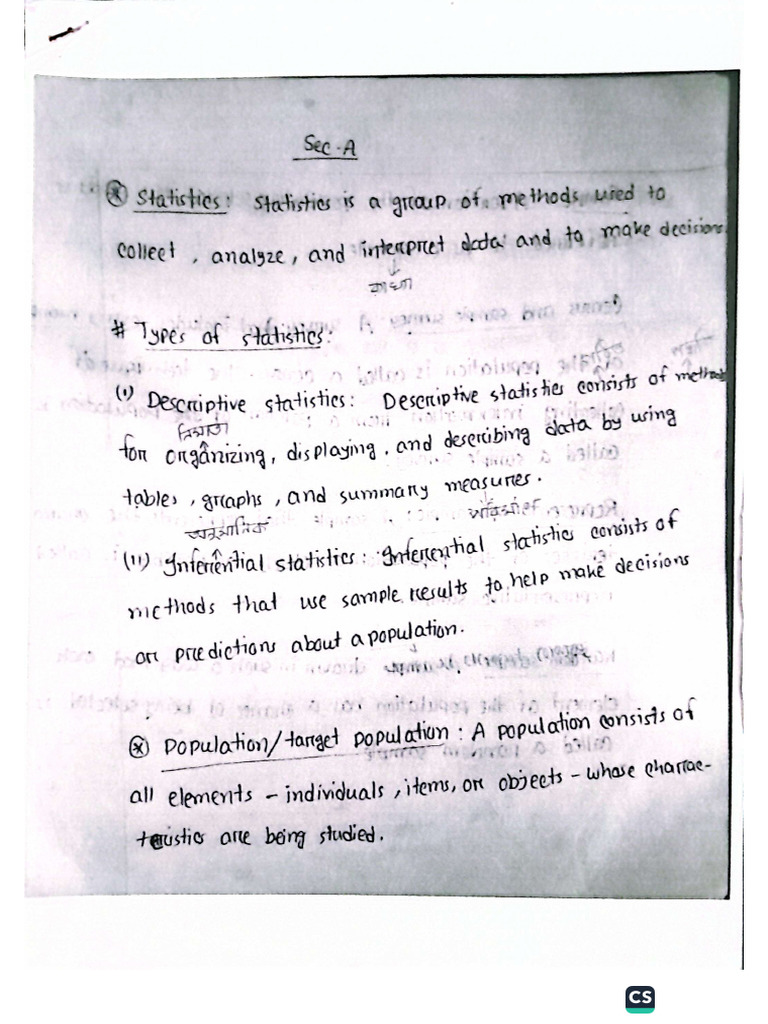 Sec-A
⊛ Statistics: Statistics is a group of methods used to
collect, analyze, and interpret data and to make decisions.
# Types of statistics:
(i) Descriptive statistics: Descriptive statistics consists of methods
for organizing, displaying, and describing data by using
tables, graphs, and summary measures.
(ii) Inferential statistics: Inferential statistics consists of
methods that use sample results to help make decisions
or predictions about a population.
⊛ Population/target population: A population consists of
all elements - individuals, items, or objects - whose charac-
teristics are being studied.
CS